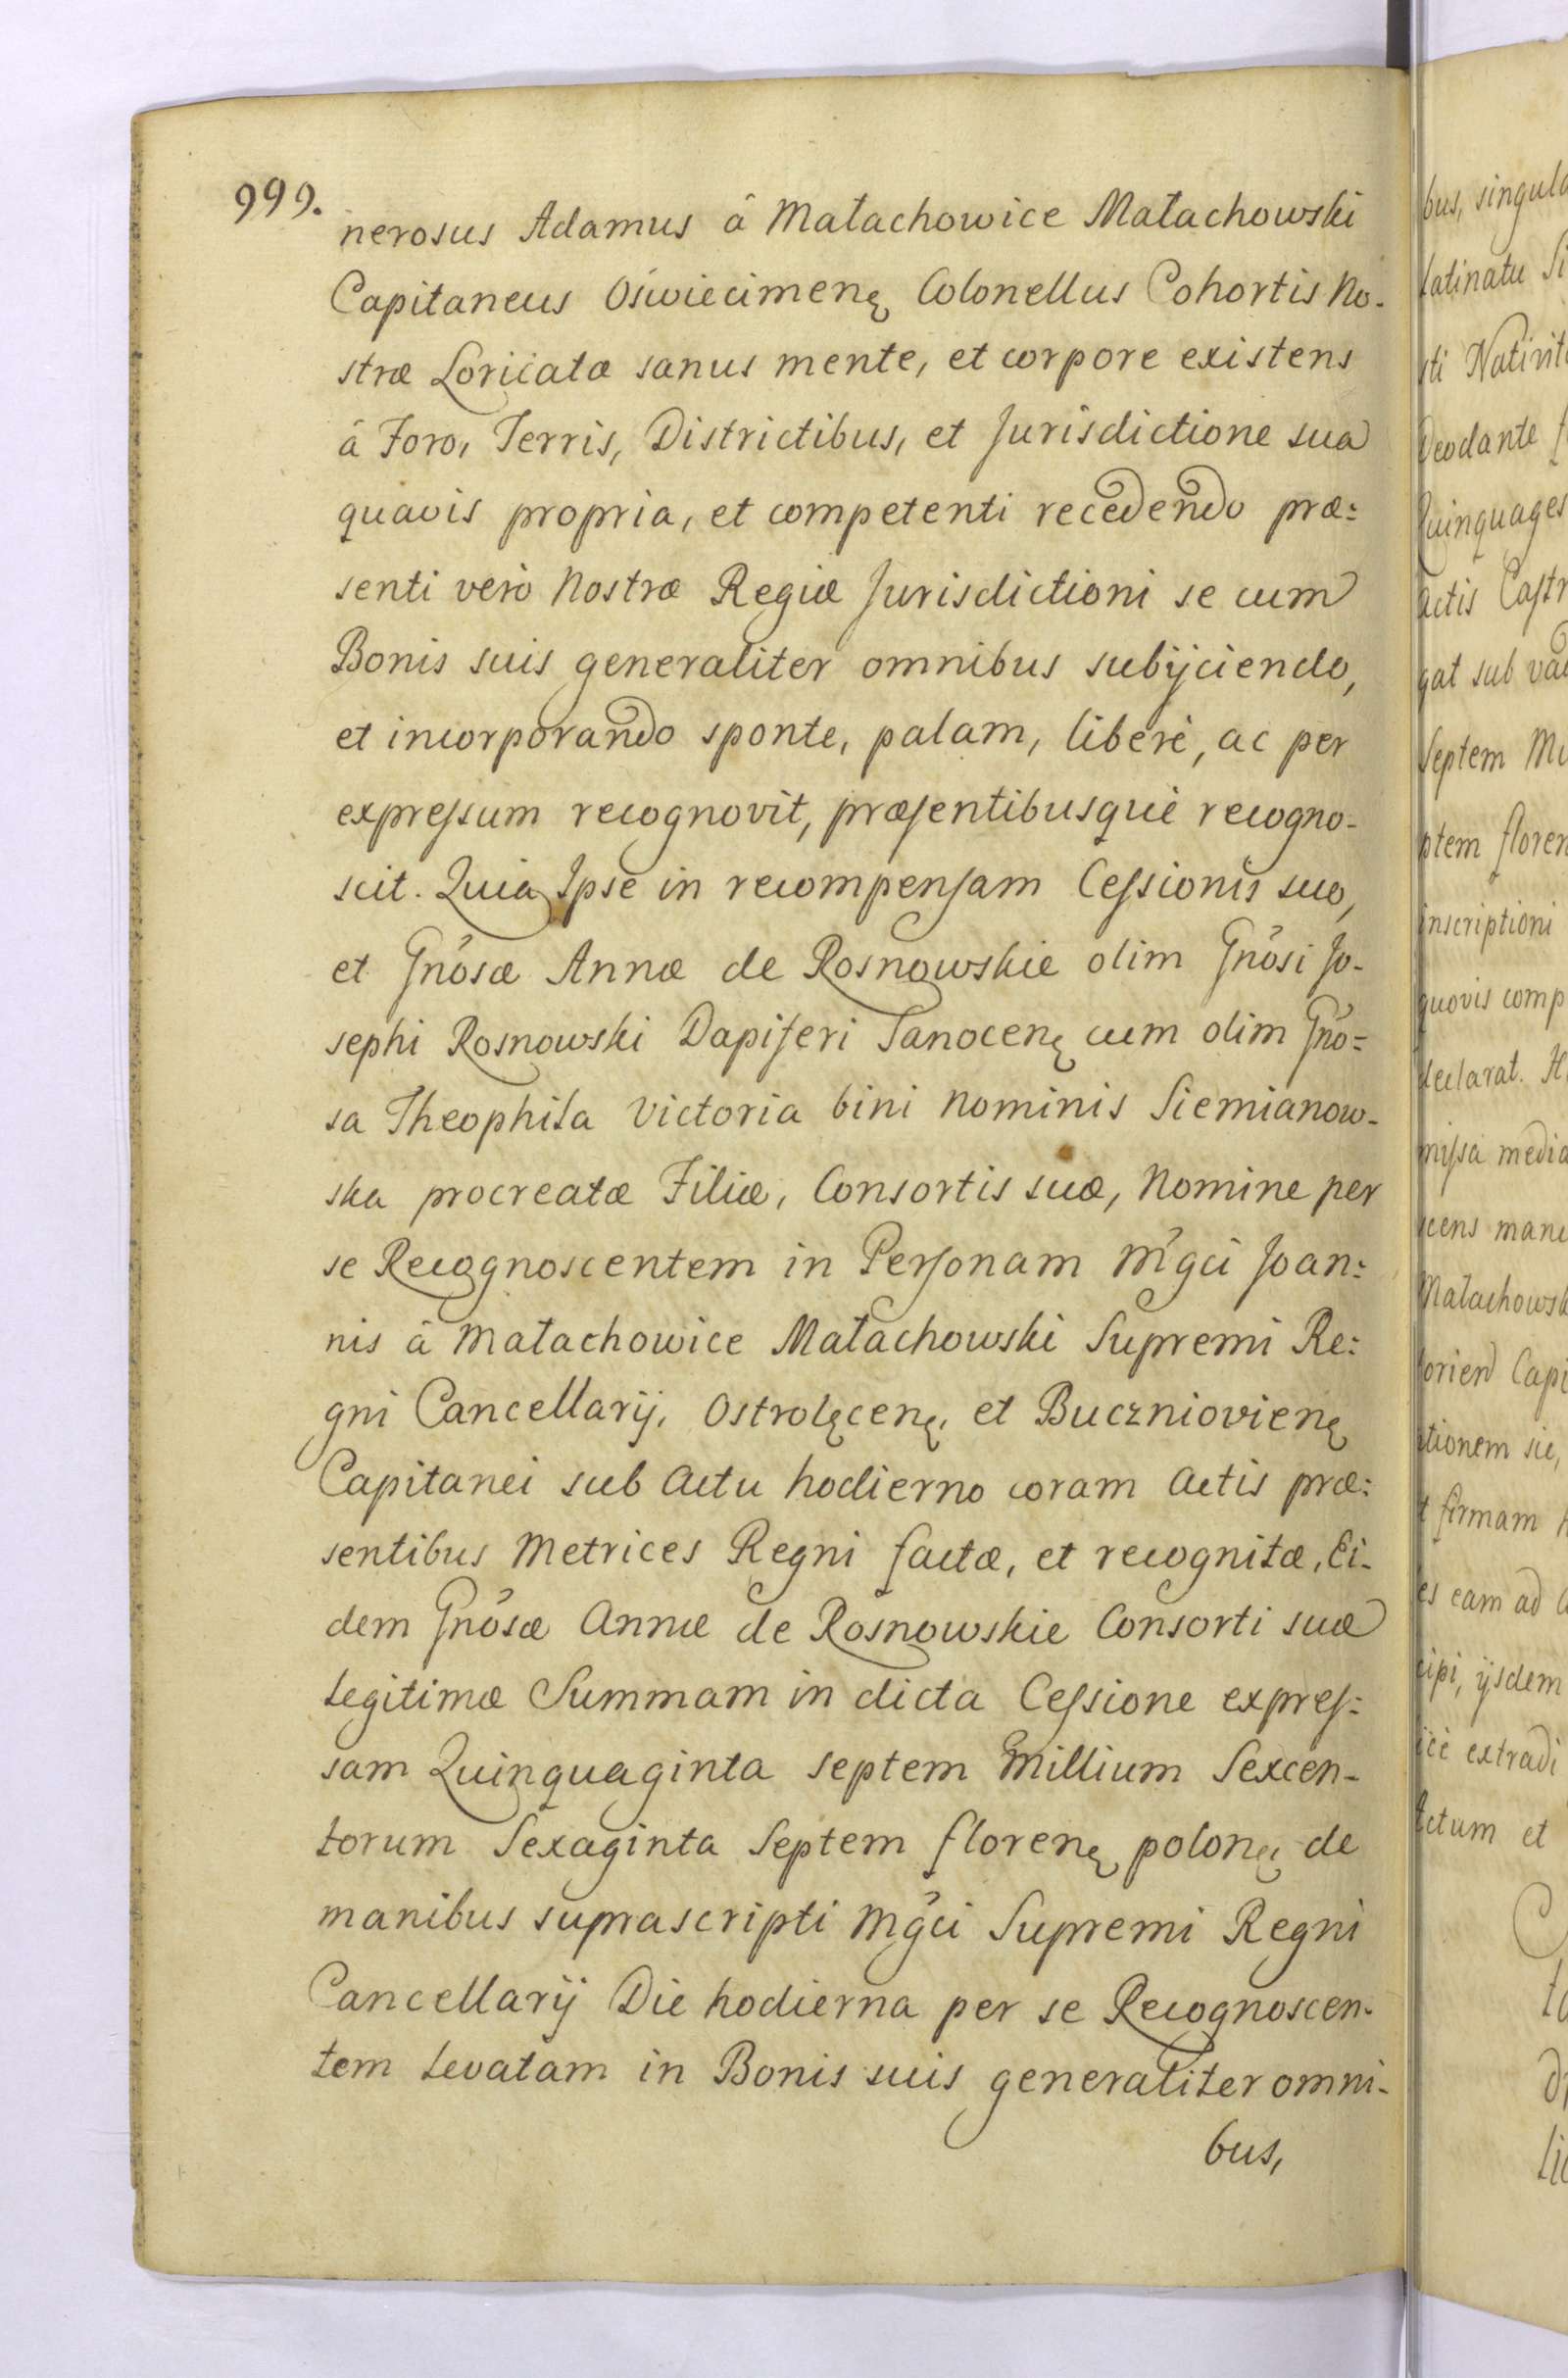 999.
nerosus Adamus â Małachowice Małachowski
Capitaneus Oświecimenę Colonellus Cohortis No-
stræ Loricatæ sanus mente, et corpore existens
â Foro, Terris, Districtibus, et Jurisdictione sua
quavis propria, et competenti recedendo præ:
senti verò Nostræ Regiæ Jurisdictioni se cum
Bonis suis generaliter omnibus subijciendo,
et incorporando sponte, palam, liberè, ac per
expressum recognovit, præsentibusquè recogno-
scit. Quia Ipse in recompensam Cessionis suo,
et Gnõsæ Annæ de Rosnowskie olim Gnõsi Jo-
sephi Rosnowski Dapiferi Sanocenę cum olim Gnõ=
sa Theophila Victoria bini Nominis Siemianow-
ska procreatæ Filiæ, Consortis suæ, Nomine per
se Recognoscentem in Personam Mg̃ci Joan:
nis â Małachowice Małachowski Supremi Re:
gni Cancellarij, Ostrolęcenę, et Buczniovienę
Capitanei sub Actu hodierno coram Actis præ:
sentibus Metrices Regni factæ, et recognitæ, Ei-
dem Gnõsæ Annæ de Rosnowskie Consorti suæ
legitimæ Summam in dicta Cessione expres:
sam Quinquaginta septem Millium Sexcen-
torum Sexaginta Septem florenę polonę de
manibus suprascripti Mg̃ci Supremi Regni
Cancellarij Die hodierna per se Recognoscen-
tem levatam in Bonis suis generaliter omni-
bus,
bus, singula
latinatu Si
sti Nativit
Deodante f
Quinquages
Actis Castr
gat sub va
Septem Mi
ptem floren
inscriptioni
quovis comp
declarat. H
missa media
scens man
Małachowsk
Capi
tionem sic,
t firmam
es eam ad
cipi, ijsdem
extradi
Actum et